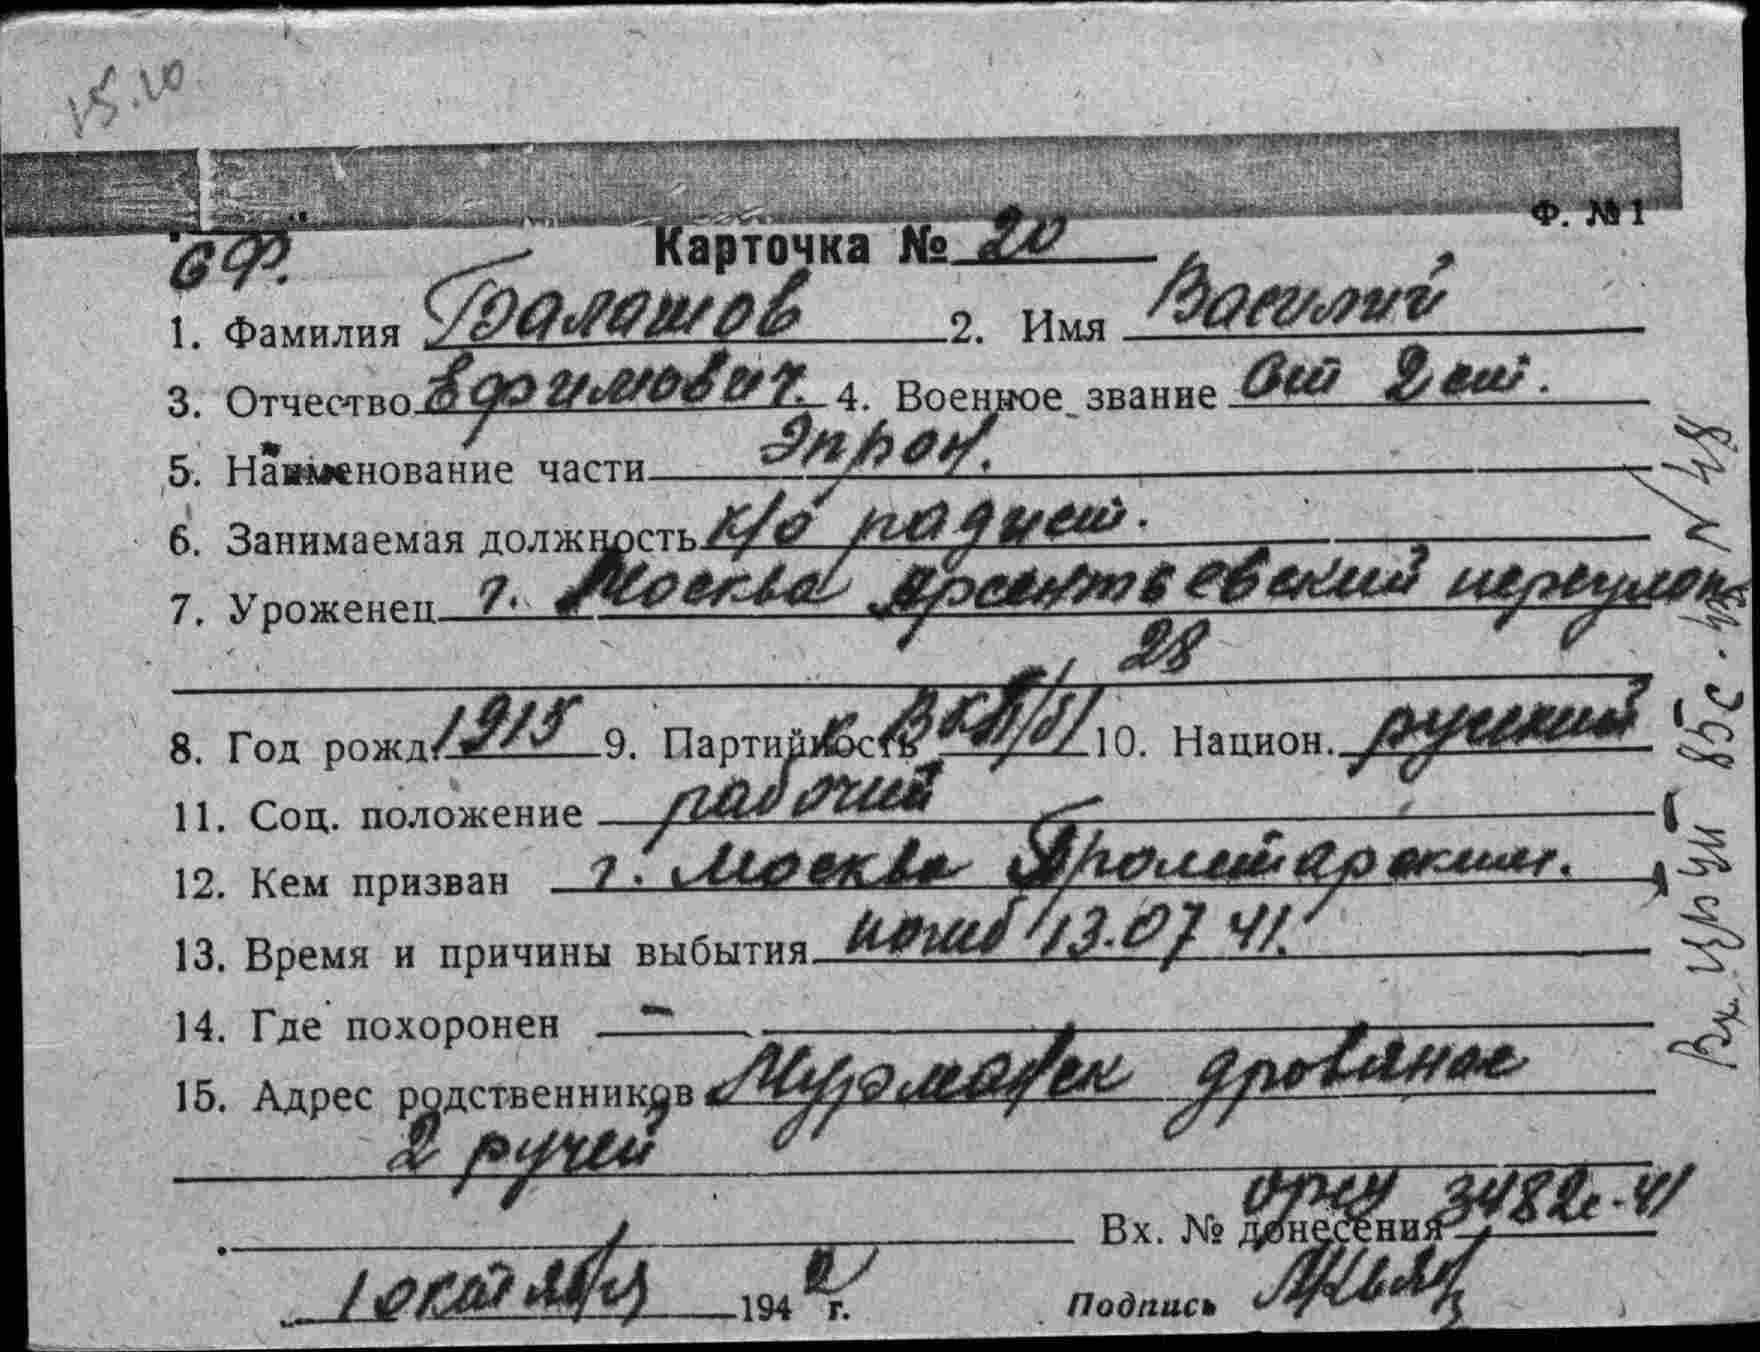 15.10
Ф. №1
"СФ."
Карточка № 20
1. Фамилия Балашов 2. Имя Василий
3. Отчество Ефимович. 4. Военное звание Ст 2 ст.
5. Наименование части Эпрон.
6. Занимаемая должность к/о радист.
7. Уроженец г. Москва Арсентьевский переулок
28
8. Год рожд. 1915 9. Партийность к ВКП/б/ 10. Национ. русский
11. Соц. положение рабочий
12. Кем призван г. Москва Пролетарским.
13. Время и причины выбытия погиб 13.07 41.
14. Где похоронен –
15. Адрес родственников Мурманск дровяное
2 ручей
Вх. № донесения 3482с-41
1 октября 1942 г. Подпись